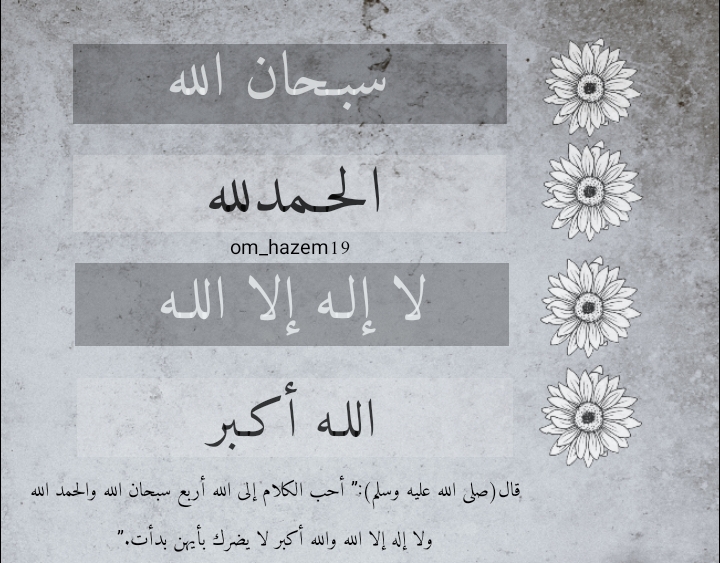 سبحان الله
الحمدلله
om_hazem19
لا إله إلا الله
الله أكبر
قال(صلى الله عليه وسلم):" أحب الكلام إلى الله أربع سبحان الله والحمد الله
ولا إله إلا الله والله أكبر لا يضرك بأيهن بدأت."